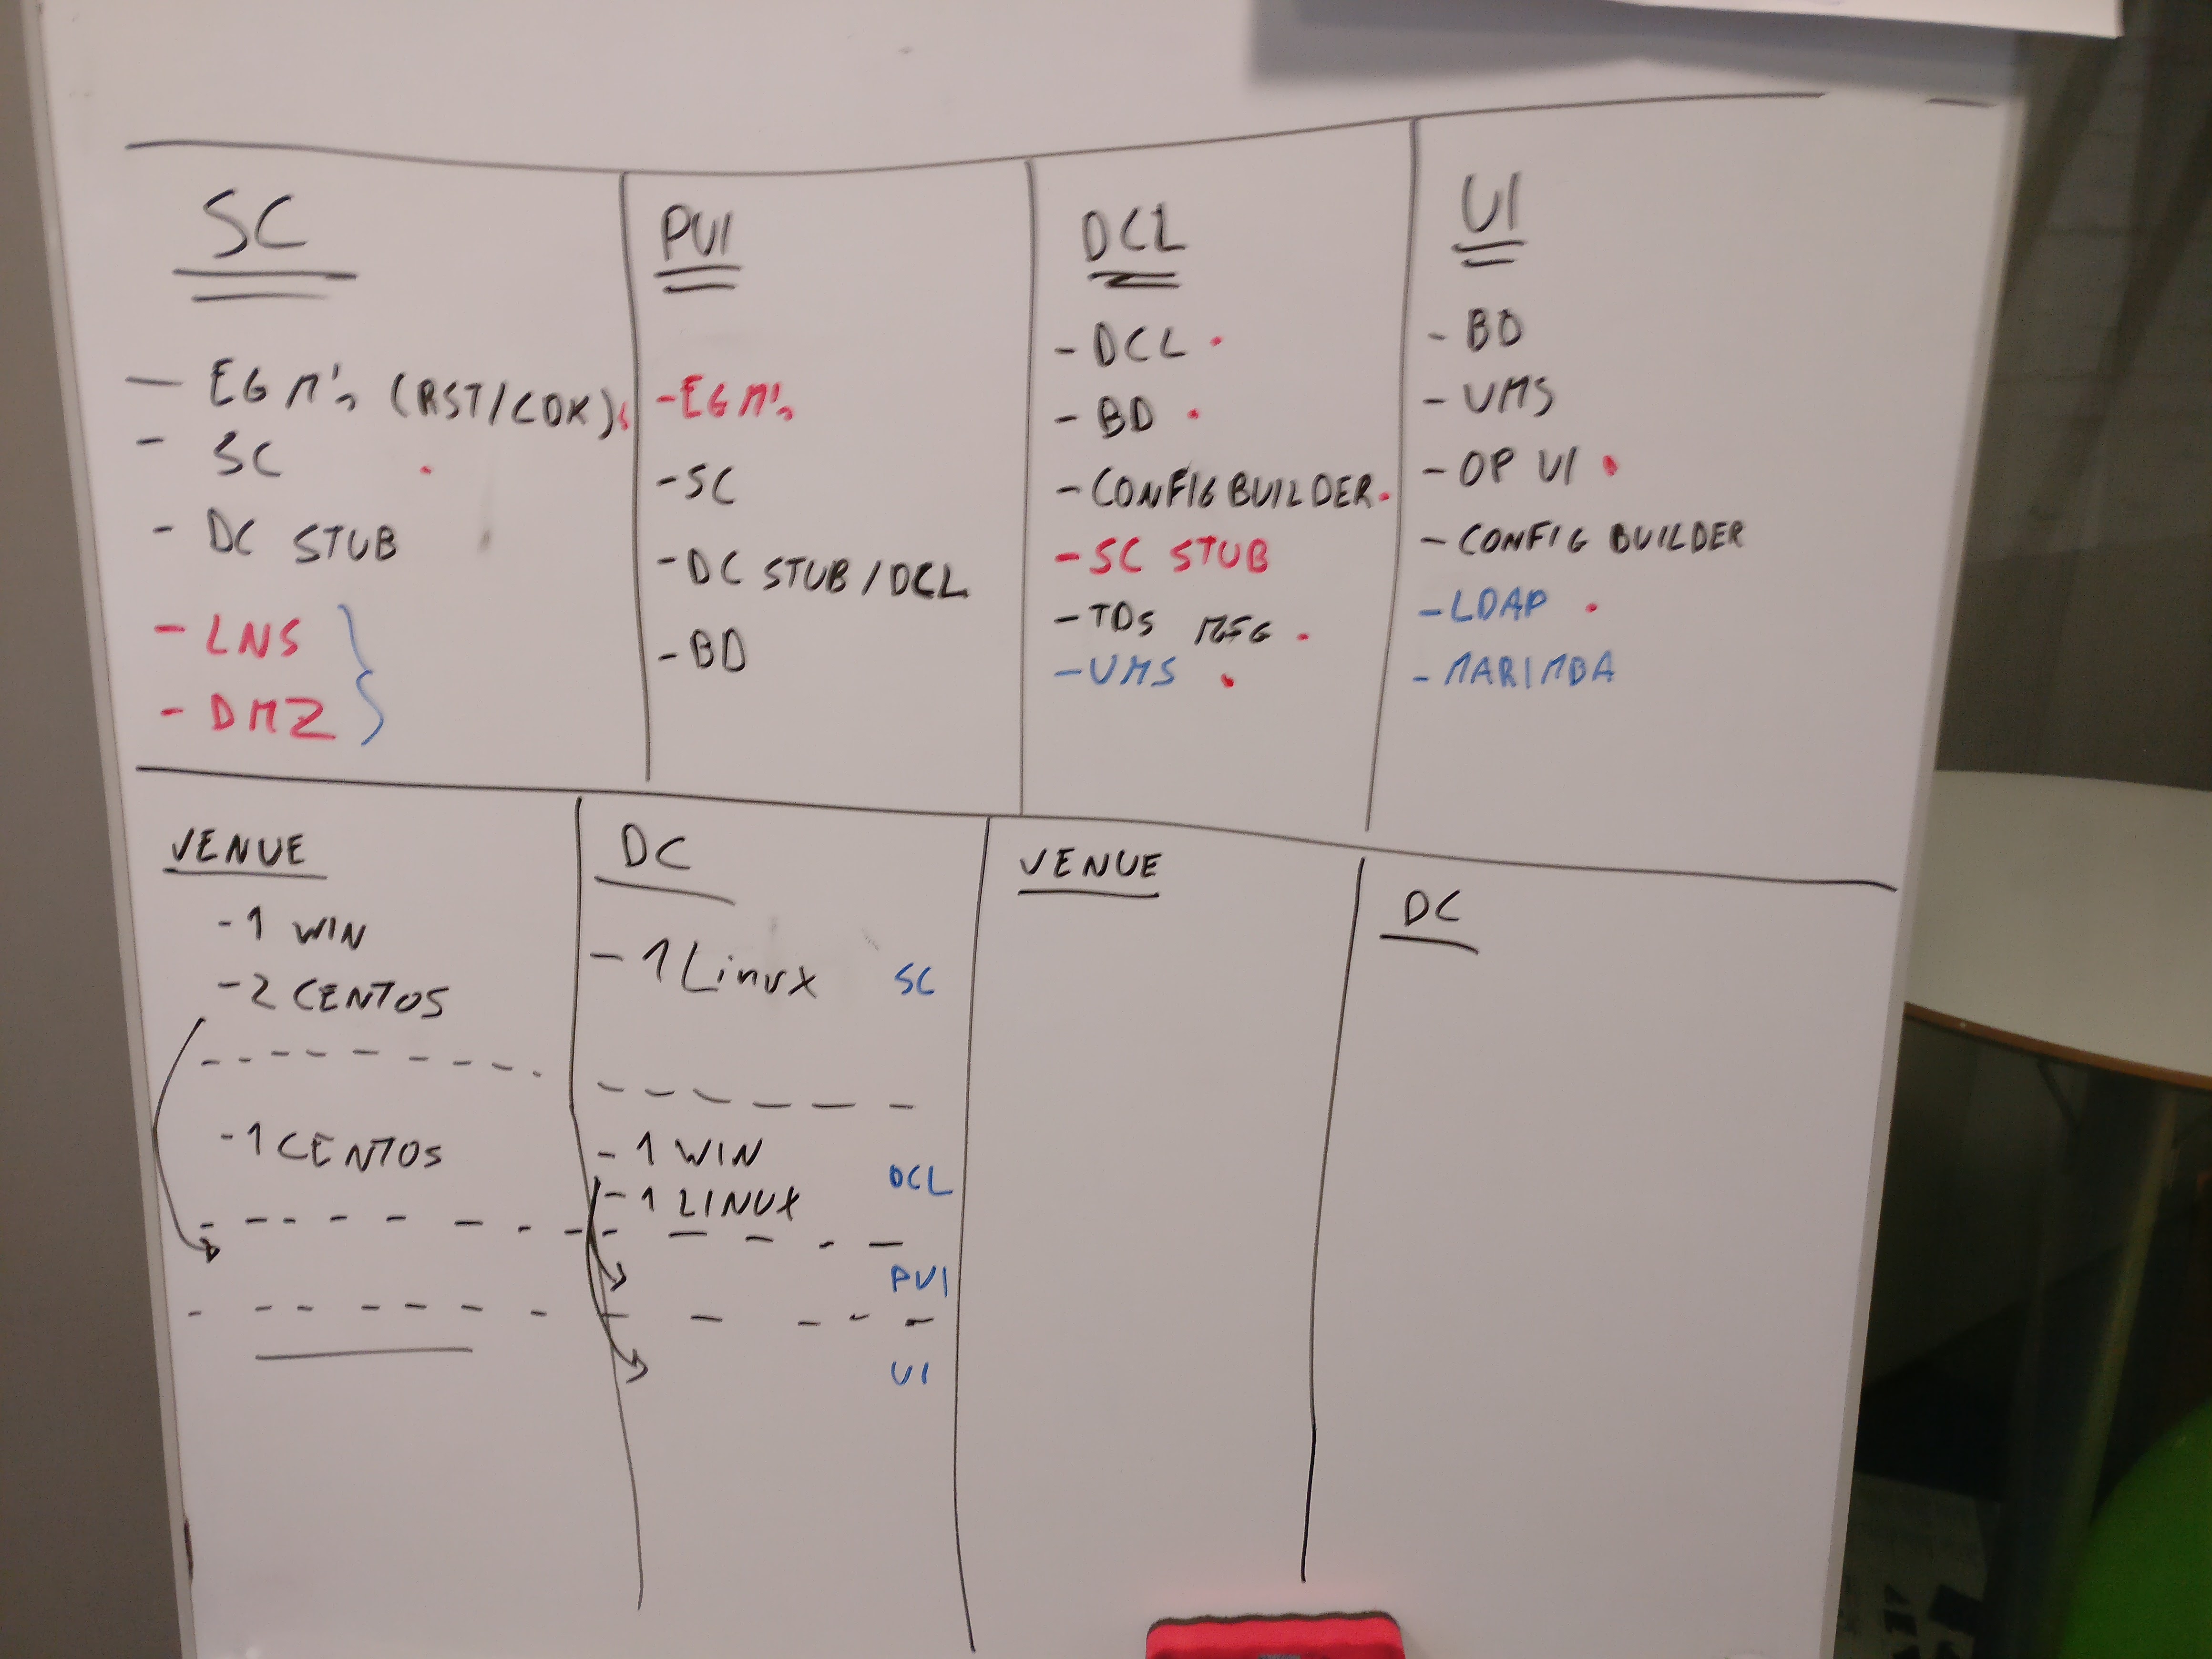 SC
- EGM's (RST/CDK)
- SC
- DC STUB
- LNS
- DMZ
PUI
- EGM's
- SC
- DC STUB / DCL
- BD
DCL
- DCL
- BD
- CONFIG BUILDER
- SC STUB
- TDS MSG
- UMS
UI
- BD
- UMS
- OP UI
- CONFIG BUILDER
- LDAP
- MARIMBA
VENUE
- 1 WIN
- 2 CENTOS
- 1 CENTOS
DC
- 1 Linux SC
- 1 WIN
DCL
- 1 LINUX
PUI
UI
VENUE
DC